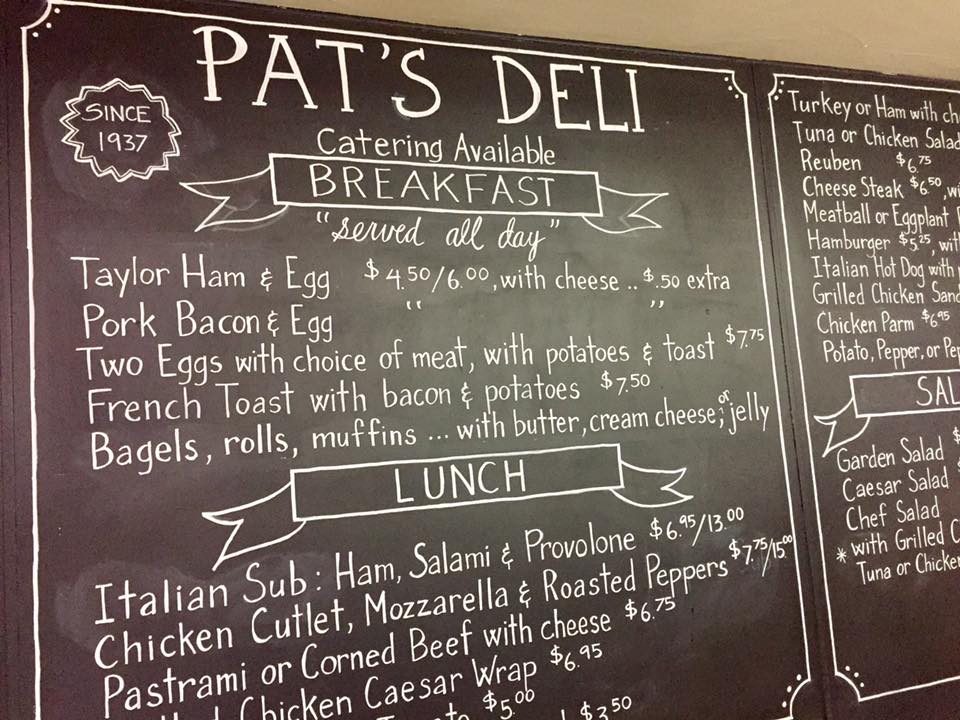 PAT'S DELI
SINCE
1937
Catering Available
BREAKFAST
"served all day"
Taylor Ham & Egg $4.50/6.00, with cheese .. $.50 extra
Pork Bacon & Egg " "
Two Eggs with choice of meat, with potatoes & toast $7.75
French Toast with bacon & potatoes $7.50
Bagels, rolls, muffins ... with butter, cream cheese, or jelly
LUNCH
Italian Sub: Ham, Salami & Provolone $6.95/13.00
Chicken Cutlet, Mozzarella & Roasted Peppers $7.75/15.00
Pastrami or Corned Beef with cheese $6.75
Chicken Caesar Wrap $6.95
$5.00
$3.50
Turkey or Ham with
Tuna or Chicken Salad
Reuben $6.75
Cheese Steak $6.50,
Meatball or Eggplant
Hamburger $5.25,
Italian Hot Dog with
Grilled Chicken
Chicken Parm $6.95
Potato, Pepper, or
Garden Salad $
Caesar Salad $
Chef Salad
* with Grilled
Tuna or